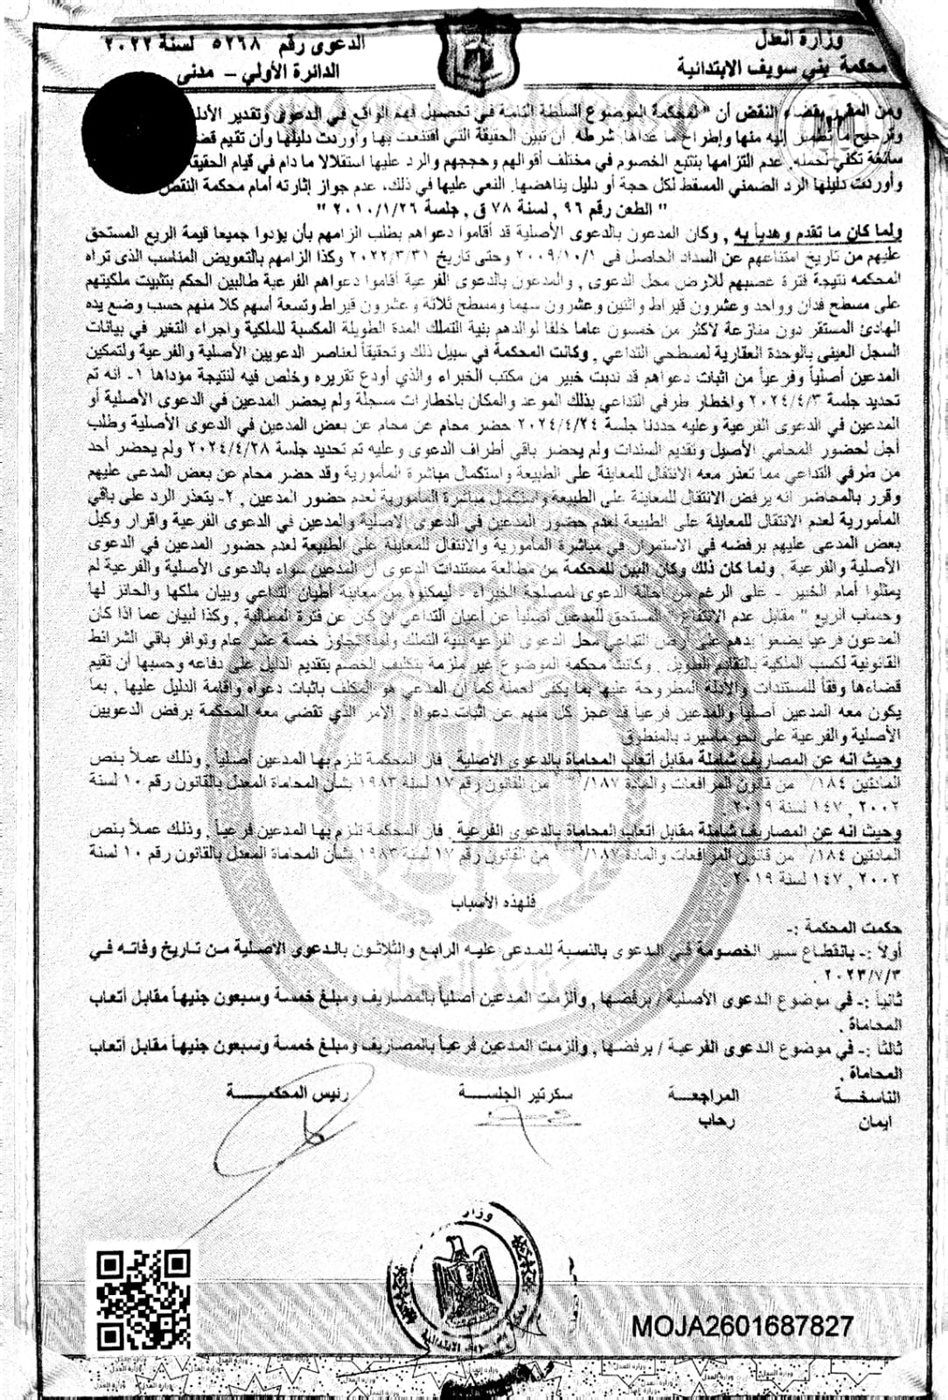 وزارة العدل
محكمة بني سويف الابتدائية
الدعوى رقم ٥٢٦٨ لسنة ٢٠٢٢
الدائرة الأولي – مدنى
ومن المقرر بقضاء النقض أن " لمحكمة الموضوع السلطة التامة في تحصيل فهم الواقع في الدعوى وتقدير الأدلة
وترجيح ما تطمئن إليه منها وإطراح ما عداها, شرطه, أن تبين الحقيقة التي اقتنعت بها وأوردت دليلها وأن تقيم
سائغة تكفي لحمله, عدم التزامها بتتبع الخصوم في مختلف أقوالهم وحججهم والرد عليها استقلالا ما دام في قيام الحقيقة
وأوردت دليلها الرد الضمني المسقط لكل حجة أو دليل يناهضها, النعي عليها في ذلك, عدم جواز إثارته أمام محكمة النقض
" الطعن رقم ٩٦ , لسنة ٧٨ ق , جلسة ٢٠١٠/١/٢٦ "
ولما كان ما تقدم وهدياً به , وكان المدعون بالدعوى الأصلية قد أقاموا دعواهم بطلب الزامهم بأن يؤدوا جميعا قيمة الريع المستحق
عليهم من تاريخ امتناعهم عن السداد الحاصل فى ٢٠٠٩/١٠/١ وحتى تاريخ ٢٠٢٢/٣/٣١ وكذا الزامهم بالتعويض المناسب الذى تراه
المحكمه نتيجة فترة غصبهم للارض محل الدعوى , والمدعون بالدعوى الفرعية أقاموا دعواهم الفرعية طالبين الحكم بتثبيت ملكيتهم
على مسطح فدان وواحد وعشرون قيراط واثنين وعشرون سهما ومسطح ثلاثة وعشرون قيراط وتسعة أسهم كلا منهم حسب وضع يده
الهادئ المستقر دون منازعة لاكثر من خمسون عاما خلفا لوالدهم بنية التملك المدة الطويلة المكسبة للملكية واجراء التغير في بيانات
السجل العينى بالوحدة العقارية لمسطحي التداعي , وكانت المحكمة في سبيل ذلك وتحقيقاً لعناصر الدعويين الأصلية والفرعية ولتمكين
المدعين أصلياً وفرعياً من اثبات دعواهم قد ندبت خبير من مكتب الخبراء والذي أودع تقريره وخلص فيه لنتيجة مؤداها ١- انه تم
تحديد جلسة ٢٠٢٤/٤/٣ واخطار طرفي التداعي بذلك الموعد والمكان باخطارات مسجلة ولم يحضر المدعين في الدعوى الأصلية أو
المدعين في الدعوى الفرعية وعليه حددنا جلسة ٢٠٢٤/٤/٢٤ حضر محام عن محام عن بعض المدعين في الدعوى الأصلية وطلب
أجل لحضور المحامي الأصيل وتقديم السندات ولم يحضر باقي أطراف الدعوى وعليه تم تحديد جلسة ٢٠٢٤/٤/٢٨ ولم يحضر أحد
من طرفي التداعي مما تعذر معه الانتقال للمعاينة على الطبيعة واستكمال مباشرة المأمورية وقد حضر محام عن بعض المدعى عليهم
وقرر بالمحاضر انه يرفض الانتقال للمعاينة على الطبيعة واستكمال مباشرة المأمورية لعدم حضور المدعين , ٢- يتعذر الرد على باقي
المأمورية لعدم الانتقال للمعاينة على الطبيعة لعدم حضور المدعين في الدعوى الاصلية والمدعين في الدعوى الفرعية واقرار وكيل
بعض المدعى عليهم برفضه في الاستمرار في مباشرة المأمورية والانتقال للمعاينة على الطبيعة لعدم حضور المدعين في الدعوى
الأصلية والفرعية , ولما كان ذلك وكان البين للمحكمة من مطالعة مستندات الدعوى أن المدعين سواء بالدعوى الأصلية والفرعية لم
يمثلوا أمام الخبير – على الرغم من إحالة الدعوى لمصلحة الخبراء – ليمكنوه من معاينة أطيان التداعي وبيان ملكها والحائز لها
وحساب الريع " مقابل عدم الانتفاع " المستحق للمدعين أصلياً عن أعيان التداعي ان كان عن فترة المطالبة , وكذا لبيان عما اذا كان
المدعون فرعياً يضعوا يدهم على أرض التداعي محل الدعوى الفرعية بنية التملك ولمدة تجاوز خمسة عشر عام وتوافر باقي الشرائط
القانونية لكسب الملكية بالتقادم الطويل , وكانت محكمة الموضوع غير ملزمة بتكليف الخصم بتقديم الدليل على دفاعه وحسبها أن تقيم
قضاءها وفقاً للمستندات والأدلة المطروحة عليها بما يكفى لحمله كما أن المدعي هو المكلف باثبات دعواه وإقامة الدليل عليها , بما
يكون معه المدعين أصلياً والمدعين فرعياً قد عجز كل منهم عن اثبات دعواه , الأمر الذي تقضي معه المحكمة برفض الدعويين
الأصلية والفرعية على نحو ماسيرد بالمنطوق
وحيث انه عن المصاريف شاملة مقابل أتعاب المحاماة بالدعوى الأصلية , فان المحكمة تلزم بها المدعين أصلياً , وذلك عملاً بنص
المادتين ١٨٤/ من قانون المرافعات والمادة ١٨٧/ من القانون رقم ١٧ لسنة ١٩٨٣ بشأن المحاماة المعدل بالقانون رقم ١٠ لسنة
٢٠٠٢ , ١٤٧ لسنة ٢٠١٩ .
وحيث انه عن المصاريف شاملة مقابل أتعاب المحاماة بالدعوى الفرعية , فان المحكمة تلزم بها المدعين فرعياً , وذلك عملاً بنص
المادتين ١٨٤/ من قانون المرافعات والمادة ١٨٧/ من القانون رقم ١٧ لسنة ١٩٨٣ بشأن المحاماة المعدل بالقانون رقم ١٠ لسنة
٢٠٠٢ , ١٤٧ لسنة ٢٠١٩ .
فلهذه الأسباب
حكمت المحكمة :-
أولاً :- بانقطاع سير الخصومة في الدعوى بالنسبة للمدعى عليه الرابع والثلاثون بالدعوى الاصلية من تاريخ وفاته في
٢٠٢٣/٧/٣ .
ثانياً :- في موضوع الدعوى الأصلية / برفضها , والزمت المدعين أصلياً بالمصاريف ومبلغ خمسة وسبعون جنيهاً مقابل أتعاب
المحاماة .
ثالثاً :- في موضوع الدعوى الفرعية / برفضها , والزمت المدعين فرعياً بالمصاريف ومبلغ خمسة وسبعون جنيهاً مقابل أتعاب
المحاماة .
الناسخة المراجعة سكرتير الجلسة رئيس المحكمة
ايمان رحاب
MOJA2601687827